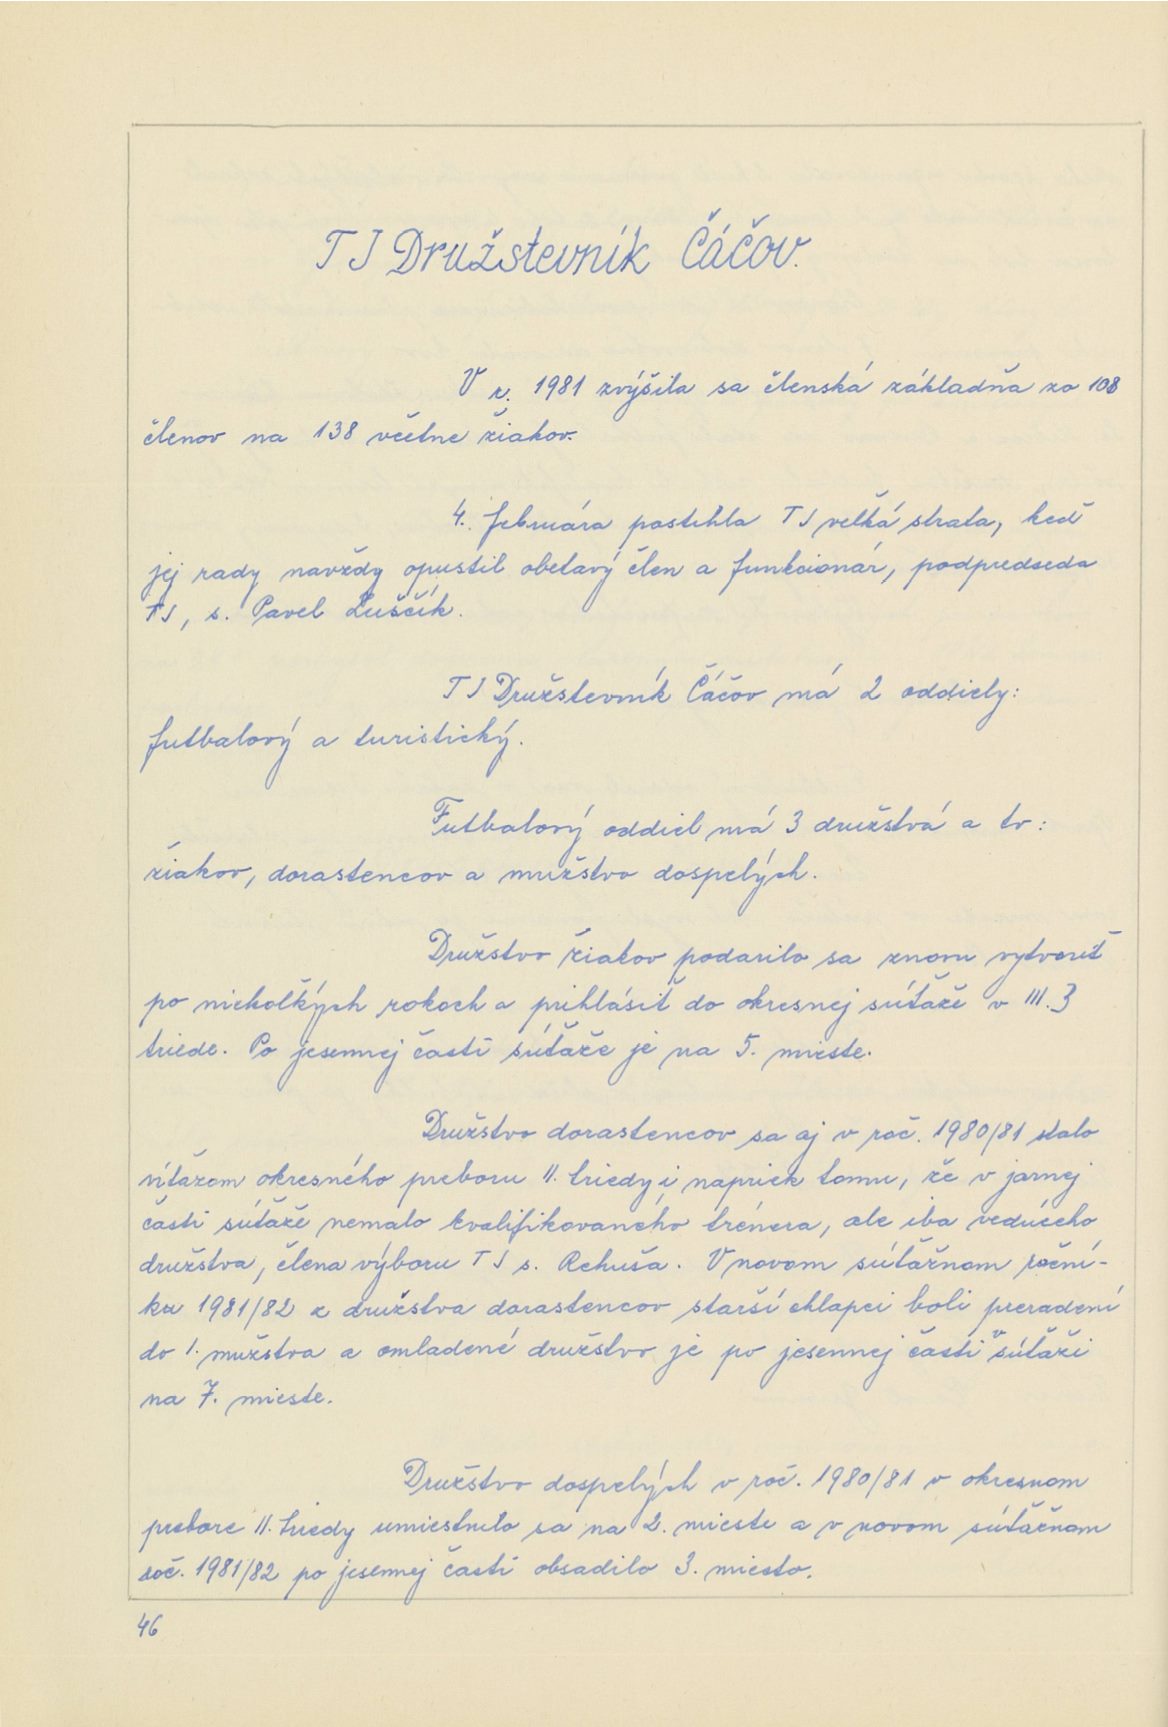 TJ Družstevník Čáčov.
V r. 1981 zvýšila sa členská základňa zo 108
členov na 138 včetne žiakov.
4. februára postihla TJ veľká strata, keď
jej rady navždy opustil obetavý člen a funkcionár, podpredseda
TJ, s. Pavel Luščík.
TJ Družstevník Čáčov má 2 oddiely:
futbalový a turistický.
Futbalový oddiel má 3 družstvá a to:
žiakov, dorastencov a mužstvo dospelých.
Družstvo žiakov podarilo sa znovu vytvoriť
po niekoľkých rokoch a prihlásiť do okresnej súťaže v III.
triede. Po jesennej časti súťaže je na 5. mieste.
Družstvo dorastencov sa aj v roč. 1980/81 stalo
víťazom okresného preboru II. triedy i napriek tomu, že v jarnej
časti súťaže nemalo kvalifikovaného trénera, ale iba vedúceho
družstva, člena výboru TJ s. Rehuša. V novom súťažnom roční-
ku 1981/82 z družstva dorastencov starší chlapci boli preradení
do 1. mužstva a omladené družstvo je po jesennej časti v súťaži
na 7. mieste.
Družstvo dospelých v roč. 1980/81 v okresnom
prebore II. triedy umiestnilo sa na 2. mieste a v novom súťažnom
roč. 1981/82 po jesennej časti obsadilo 3. miesto.
46